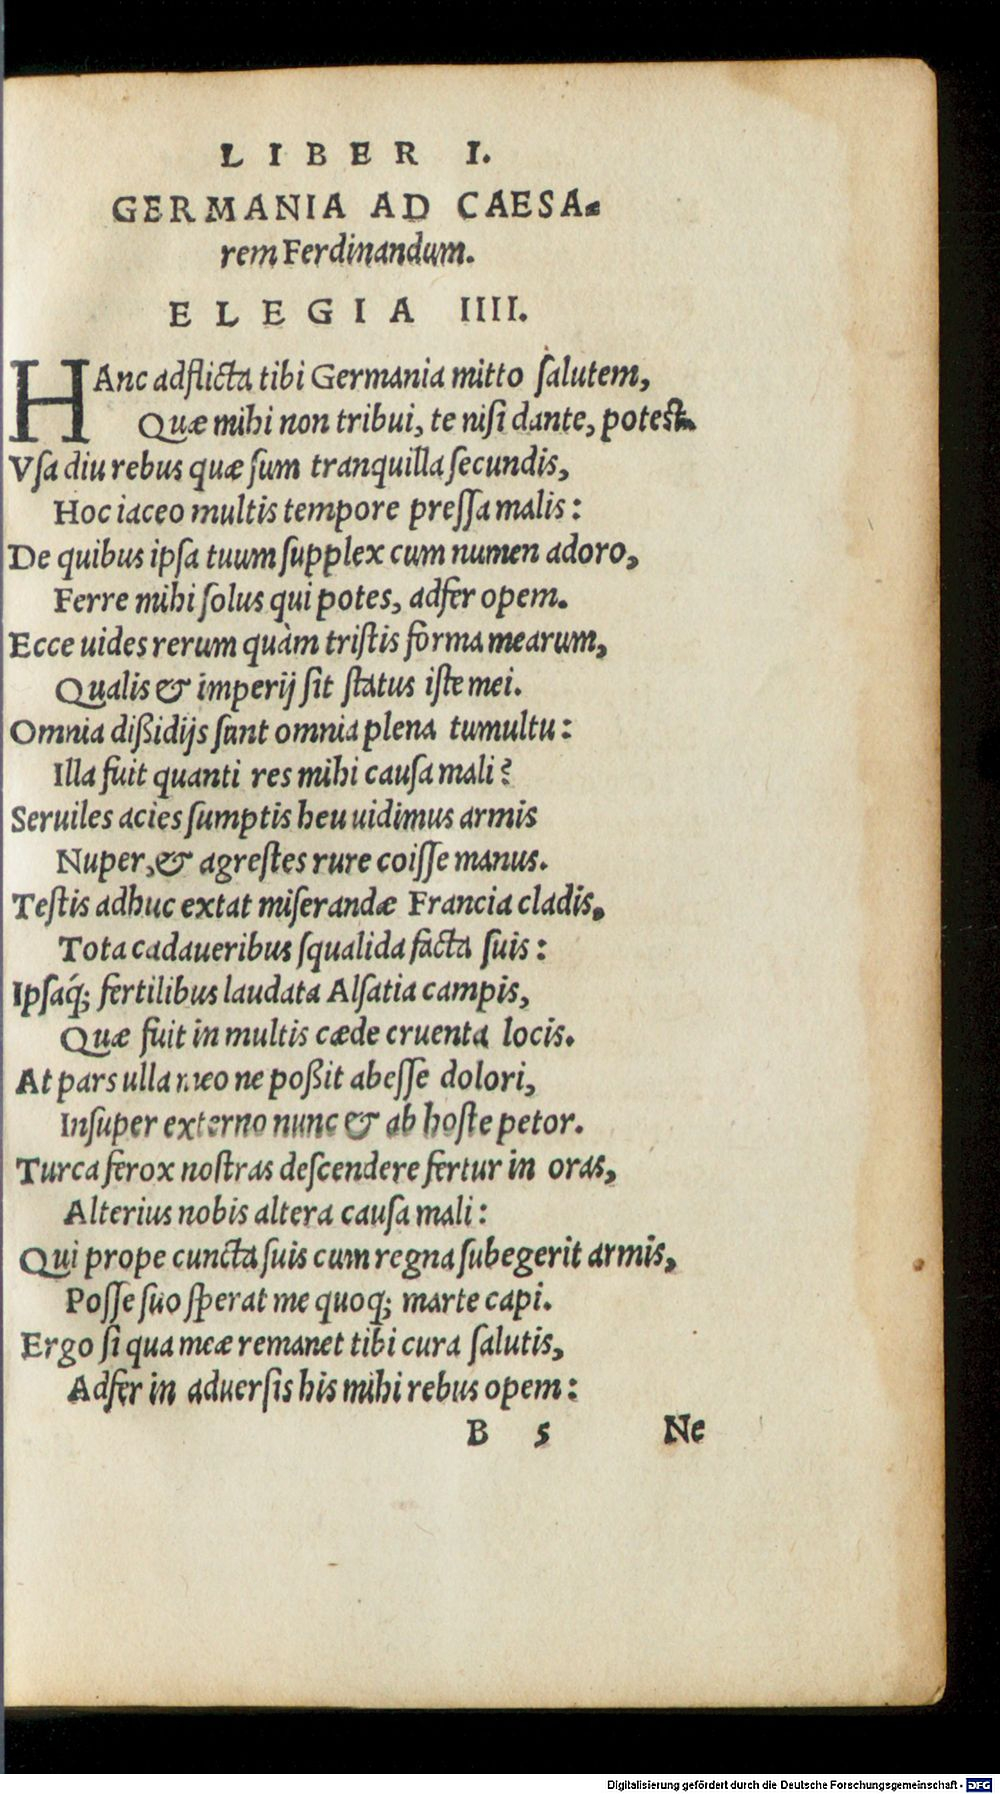 LIBER I.
GERMANIA AD CAESA-
rem Ferdinandum.
ELEGIA IIII.
HAnc adflicta tibi Germania mitto ſalutem,
Quæ mihi non tribui, te niſi dante, poteſt.
Vſa diu rebus quæ ſum tranquilla ſecundis,
Hoc iaceo multis tempore preſſa malis:
De quibus ipſa tuum ſupplex cum numen adoro,
Ferre mihi ſolus qui potes, adfer opem.
Ecce uides rerum quàm triſtis forma mearum,
Qualis & imperij ſit ſtatus iſte mei.
Omnia dißidijs ſunt omnia plena tumultu:
Illa fuit quanti res mihi cauſa mali?
Seruiles acies ſumptis heu uidimus armis
Nuper, & agreſtes rure coiſſe manus.
Teſtis adhuc extat miſerandæ Francia cladis,
Tota cadaueribus ſqualida facta ſuis:
Ipſaq́; fertilibus laudata Alſatia campis,
Quæ fuit in multis cæde cruenta locis.
At pars ulla meo ne poßit abeſſe dolori,
Inſuper externo nunc & ab hoſte petor.
Turca ferox noſtras deſcendere fertur in oras,
Alterius nobis altera cauſa mali:
Qui prope cuncta ſuis cum regna ſubegerit armis,
Poſſe ſuo ſperat me quoq; marte capi.
Ergo ſi qua meæ remanet tibi cura ſalutis,
Adfer in aduerſis his mihi rebus opem:
B 5 Ne
Digitalisierung gefördert durch die Deutsche Forschungsgemeinschaft - DFG